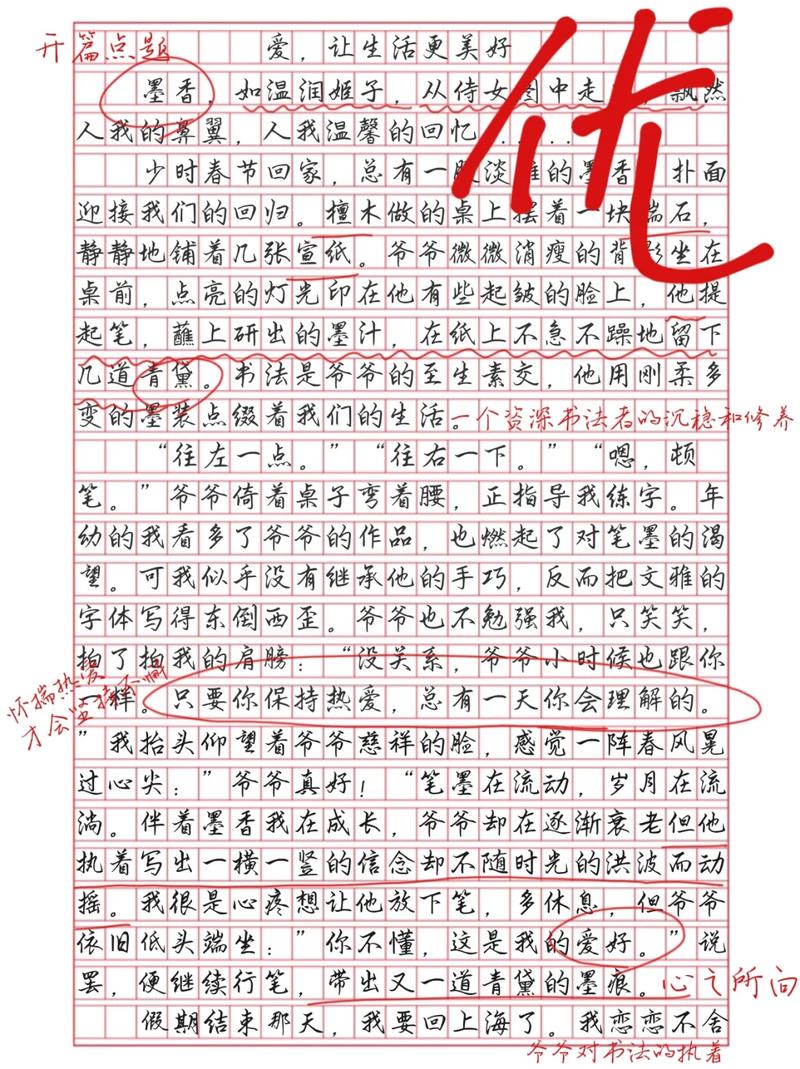 开篇点题
爱，让生活更美好
优
墨香，如温润姬子，从侍女图中走，飘然
人我的鼻翼，人我温馨的回忆......
少时春节回家，总有一股淡雅的墨香，扑面
迎接我们的回归。檀木做的桌上摆着一块端石，
静静地铺着几张宣纸。爷爷微微消瘦的背影坐在
桌前，点亮的灯光印在他有些起皱的脸上，他提
起笔，蘸上研出的墨汁，在纸上不急不躁地留下
几道青黛。书法是爷爷的至生素交，他用刚柔多
变的墨装点缀着我们的生活。
一个资深书法者的沉稳和修养
“往左一点。”“往右一下。”“嗯，顿
笔。”爷爷倚着桌子弯着腰，正指导我练字。年
幼的我看多了爷爷的作品，也燃起了对笔墨的渴
望。可我似乎没有继承他的手巧，反而把文雅的
字体写得东倒西歪。爷爷也不勉强我，只笑笑，
拍了拍我的肩膀：“没关系，爷爷小时候也跟你
一样。只要你保持热爱，总有一天你会理解的。
怀揣热爱
才会坚持不懈
”我抬头仰望着爷爷慈祥的脸，感觉一阵春风晃
过心尖：”爷爷真好！“笔墨在流动，岁月在流
淌。伴着墨香我在成长，爷爷却在逐渐衰老但他
执着写出一横一竖的信念却不随时光的洪波而动
摇。我很是心疼想让他放下笔，多休息，但爷爷
依旧低头端坐：”你不懂，这是我的爱好。”说
罢，便继续行笔，带出又一道青黛的墨痕。
心之所向
假期结束那天，我要回上海了。我恋恋不舍
爷爷对书法的执着